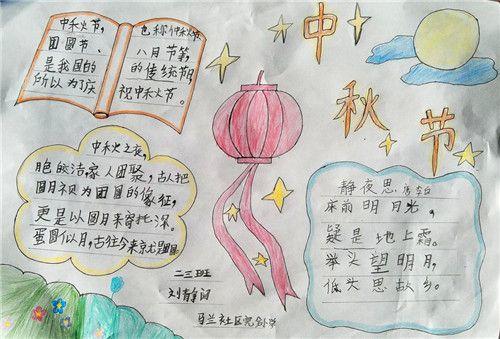 中秋节
中秋节，
团圆节、
是我国的
所以为了庆
也称仲秋节
八月节等，
的传统节日
祝中秋节。
中秋之夜，
皎洁，家人团聚，古人把
圆月视为团圆的象征，
更是以圆月来寄托深。
圆似月，古往今来
静夜思 李白
床前明月光，
疑是地上霜。
举头望明月，
低头思故乡。
二三班
刘静
社区完全小学